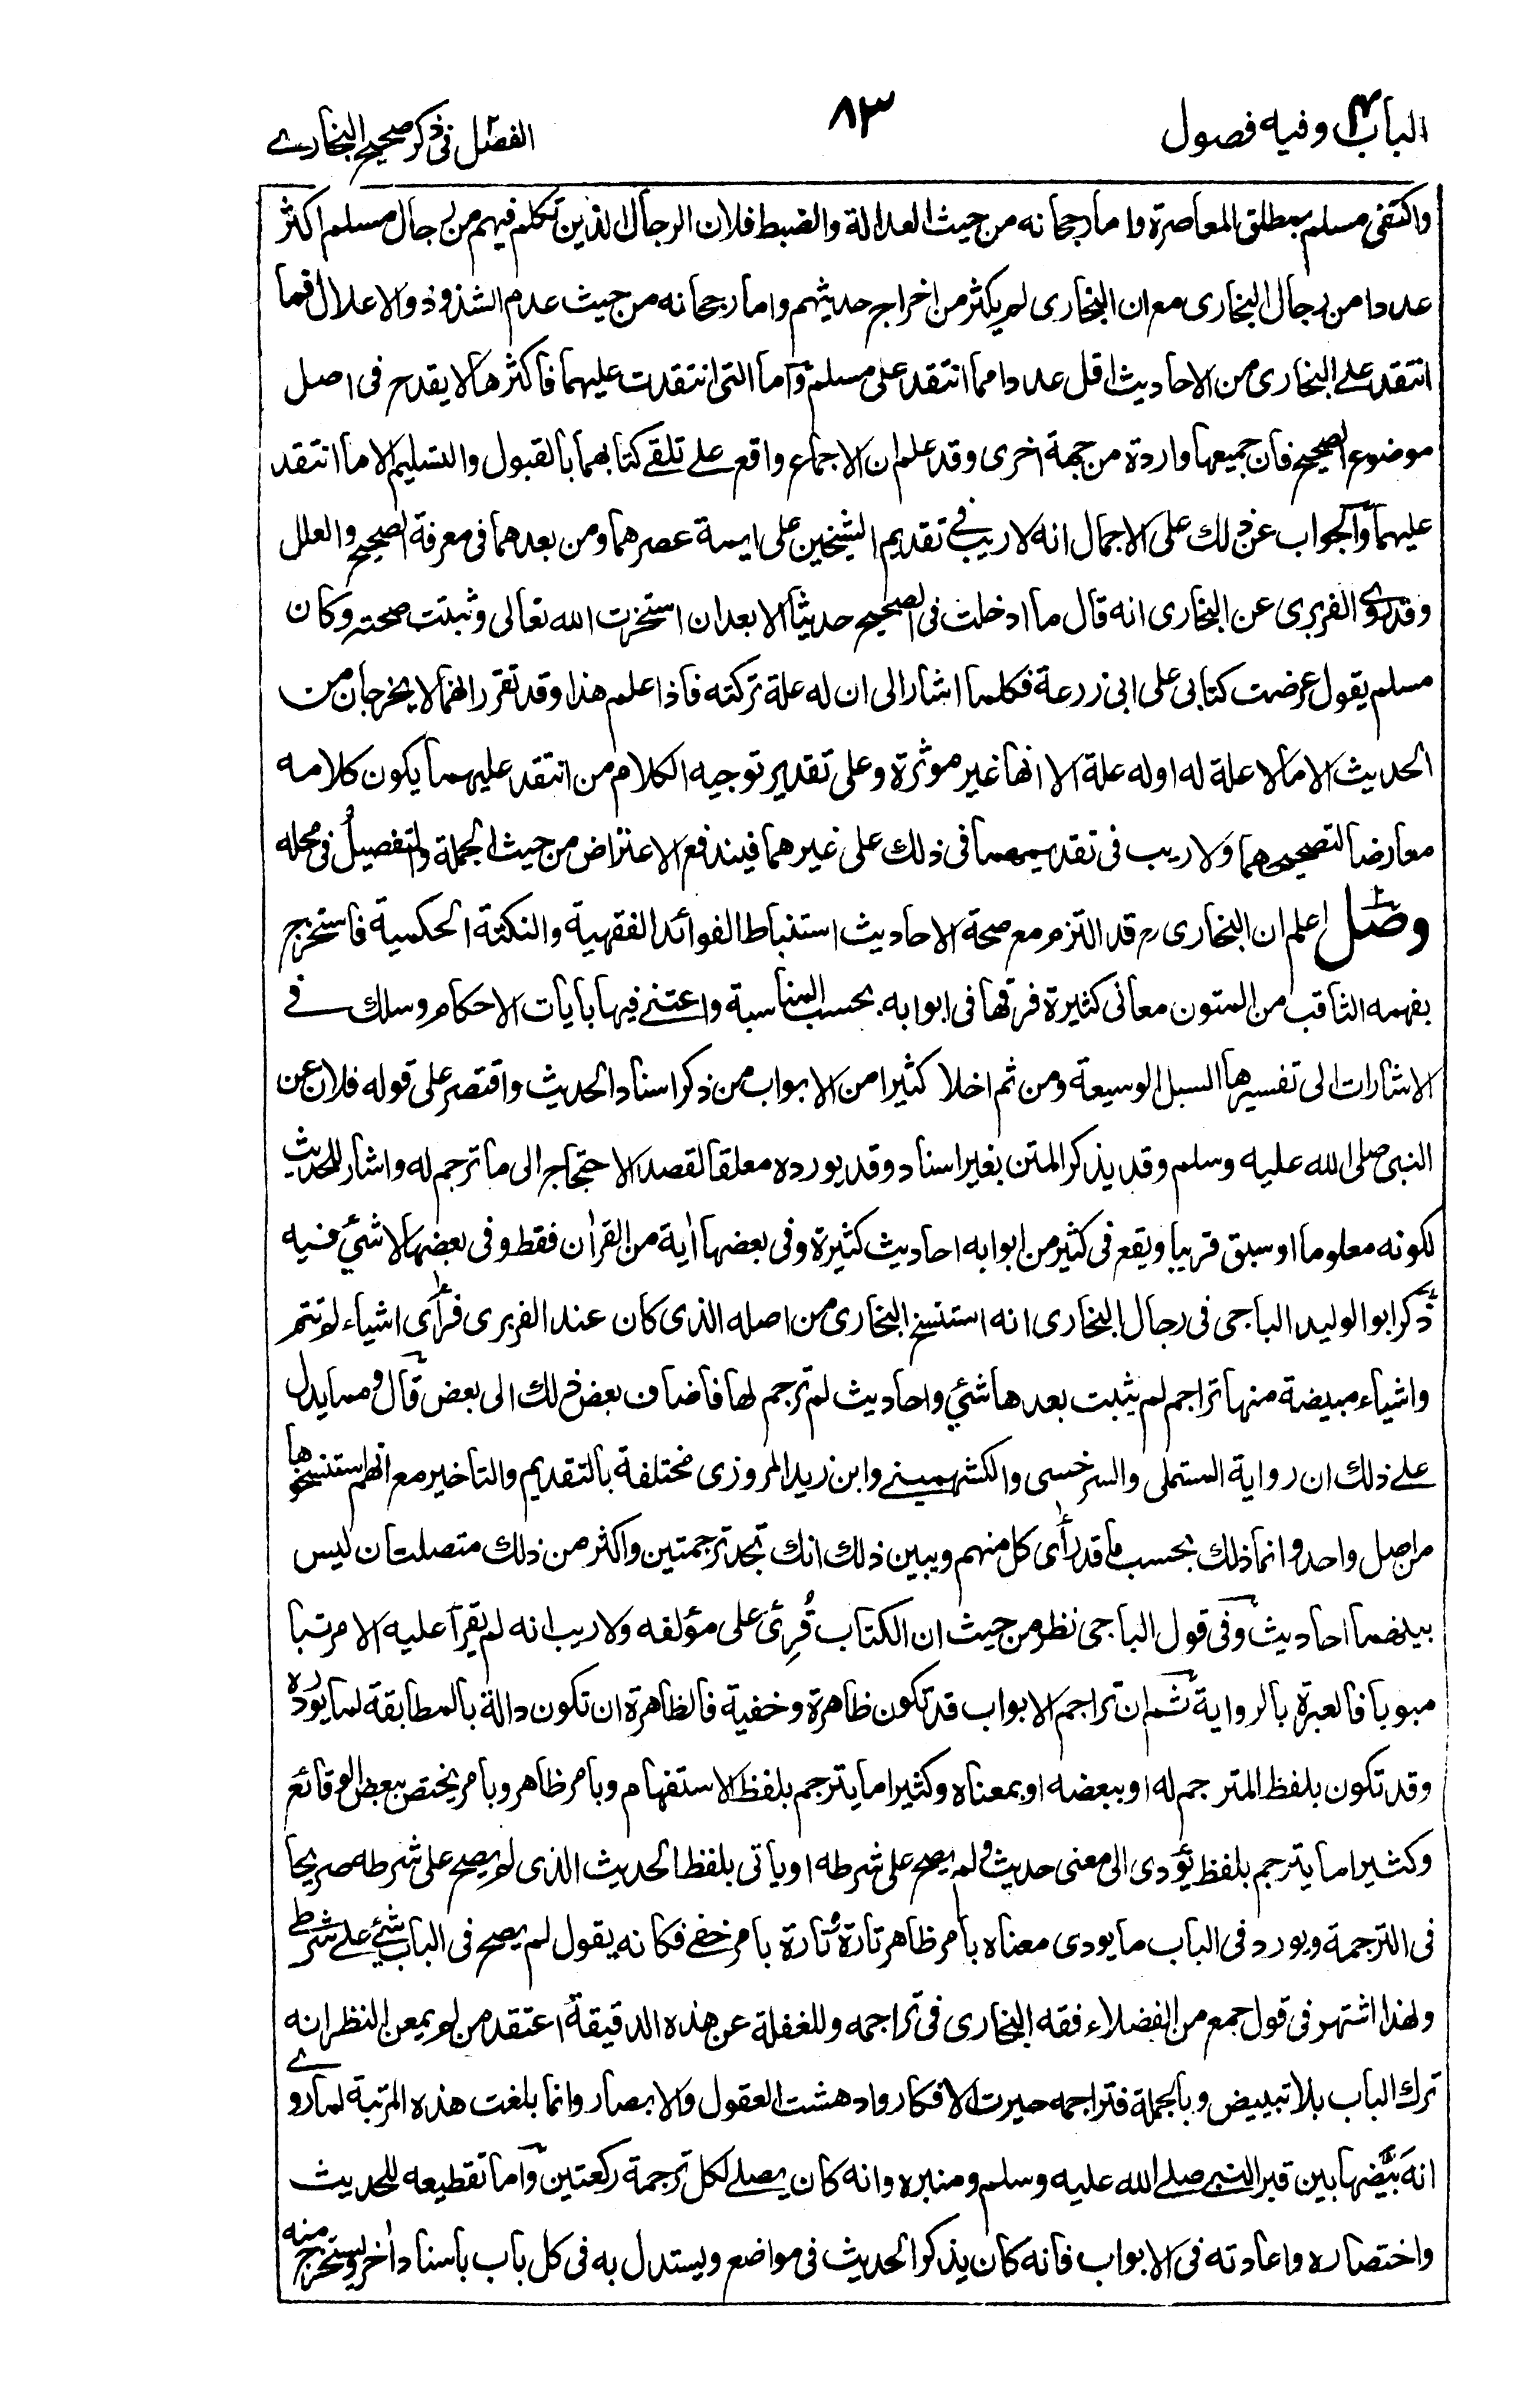 الباب٤ وفيه فصول
٨٣
الفصل ١ فى ذكر صحيح البخارے
واكتفى مسلم بمطلق المعاصرة واما رجحانه من حيث العدالة والضبط فلان الرجال الذين تكلم فيهم من رجال مسلم اكثر
عددا من رجال البخارى مع ان البخارى لم يكثر من اخراج حديثهم واما رجحانه من حيث عدم الشذوذ والاعلال فما
انتقد علے البخارى من الاحاديث اقل عددا مما انتقد على مسلم وآما التى انتقدت عليهما فاكثرها لا يقدح فى اصل
موضوع الصحيح فان جميعها واردة من جهة اخرى وقد علم ان الاجماع واقع علے تلقے كتابهما بالقبول والتسليم الا ما انتقد
عليهما وآلجواب عن ذلك على الاجمال انه لا ريب فے تقديم الشيخين على ايمة عصرهما ومن بعدهما فى معرفة الصحيح والعلل
وقد روے الفربرى عن البخارى انه قال ما ادخلت فى الصحيح حديثا الا بعد ان استخرت الله تعالى وثبتت صحته وكان
مسلم يقول عرضت كتابى على ابى زرعة فكلما اشار الى ان له علة تركته فاذا علم هذا وقد تقرر انهما لا يخرجان من
الحديث الا ما لا علة له او له علة الا انها غير موثرة وعلى تقدير توجيه الكلام من انتقد عليهما يكون كلامه
معارضا لتصحيحهما ولا ريب فى تقديمهما فى ذلك على غيرهما فيندفع الاعتراض من حيث الجملة والتفصيل فى محله
وصل اعلم ان البخارى رح قد التزم مع صحة الاحاديث استنباط الفوائد الفقهية والنكتة الحكمية فاستخرج
بفهمه الثاقب من المتون معانى كثيرة فرقها فى ابوابه بحسب المناسبة واعتنے فيها بايات الاحكام وسلك فے
الاشارات الى تفسيرها السبل الوسيعة ومن ثم اخلا كثيرا من الابواب من ذكر اسناد الحديث واقتصر على قوله فلان عن
النبى صلى الله عليه وسلم وقد يذكر المتن بغير اسناد وقد يورده معلقا لقصد الاحتجاج الى ما ترجم له واشار للحديث
لكونه معلوما او سبق قريبا ويقع فى كثير من ابوابه احاديث كثيرة وفى بعضها اٰية من القراٰن فقط وفى بعضها لا شئ فيه
ذكر ابو الوليد الباجى فى رجال البخارى انه استنسخ البخارى من اصله الذى كان عند الفربرى فرأى اشياء لم تتم
واشياء مبيضة منها تراجم لم يثبت بعدها شئ واحاديث لم ترجم لها فاضاف بعض ذلك الى بعض قال ومما يدل
علے ذلك ان رواية المستملى والسرخسى والكشهمينے وابن زيد المروزى مختلفة بالتقديم والتاخير مع انهم استنسخوها
من اصل واحد وانما ذلك بحسب ما قد رأى كل منهم ويبين ذلك انك تجد ترجمتين واكثر من ذلك متصلتان ليس
بينهما احاديث وفى قول الباجى نظر من حيث ان الكتاب قُرِئ على مؤلفه ولا ريب انه لم يقرأ عليه الا مرتبا
مبوبا فالعبرة بالرواية ثم ان تراجم الابواب قد تكون ظاهرة وخفية فالظاهرة ان تكون دالة بالمطابقة لما يورده
وقد تكون بلفظ المترجم له او ببعضه او بمعناه وكثيرا ما يترجم بلفظ الاستفهام وبامر ظاهر وبامر يختص ببعض الوقائع
وكثيرا ما يترجم بلفظ يؤدى الى معنى حديث لم يصح على شرطه او ياتى بلفظ الحديث الذى لم يصح على شرطه صريحا
فى الترجمة ويورد فى الباب ما يودى معناه بامر ظاهر تارة وتارة بامر خفے فكانه يقول لم يصح فى الباب شئ علے شرطے
ولهذا اشتهر فى قول جمع من الفضلاء فقه البخارى فى تراجمه وللغفلة عن هذه الدقيقة اعتقد من لم يمعن النظر انه
ترك الباب بلا تبييض وبالجملة فتراجمه حيرت الافكار وادهشت العقول والابصار وانما بلغت هذه المرتبة لما روے
انه بَيَّضها بين قبر النبے صلے الله عليه وسلم ومنبره وانه كان يصلے لكل ترجمة ركعتين وآما تقطيعه للحديث
واختصاره واعادته فى الابواب فانه كان يذكر الحديث فى مواضع ويستدل به فى كل باب باسناد اٰخر ويستخرج منه